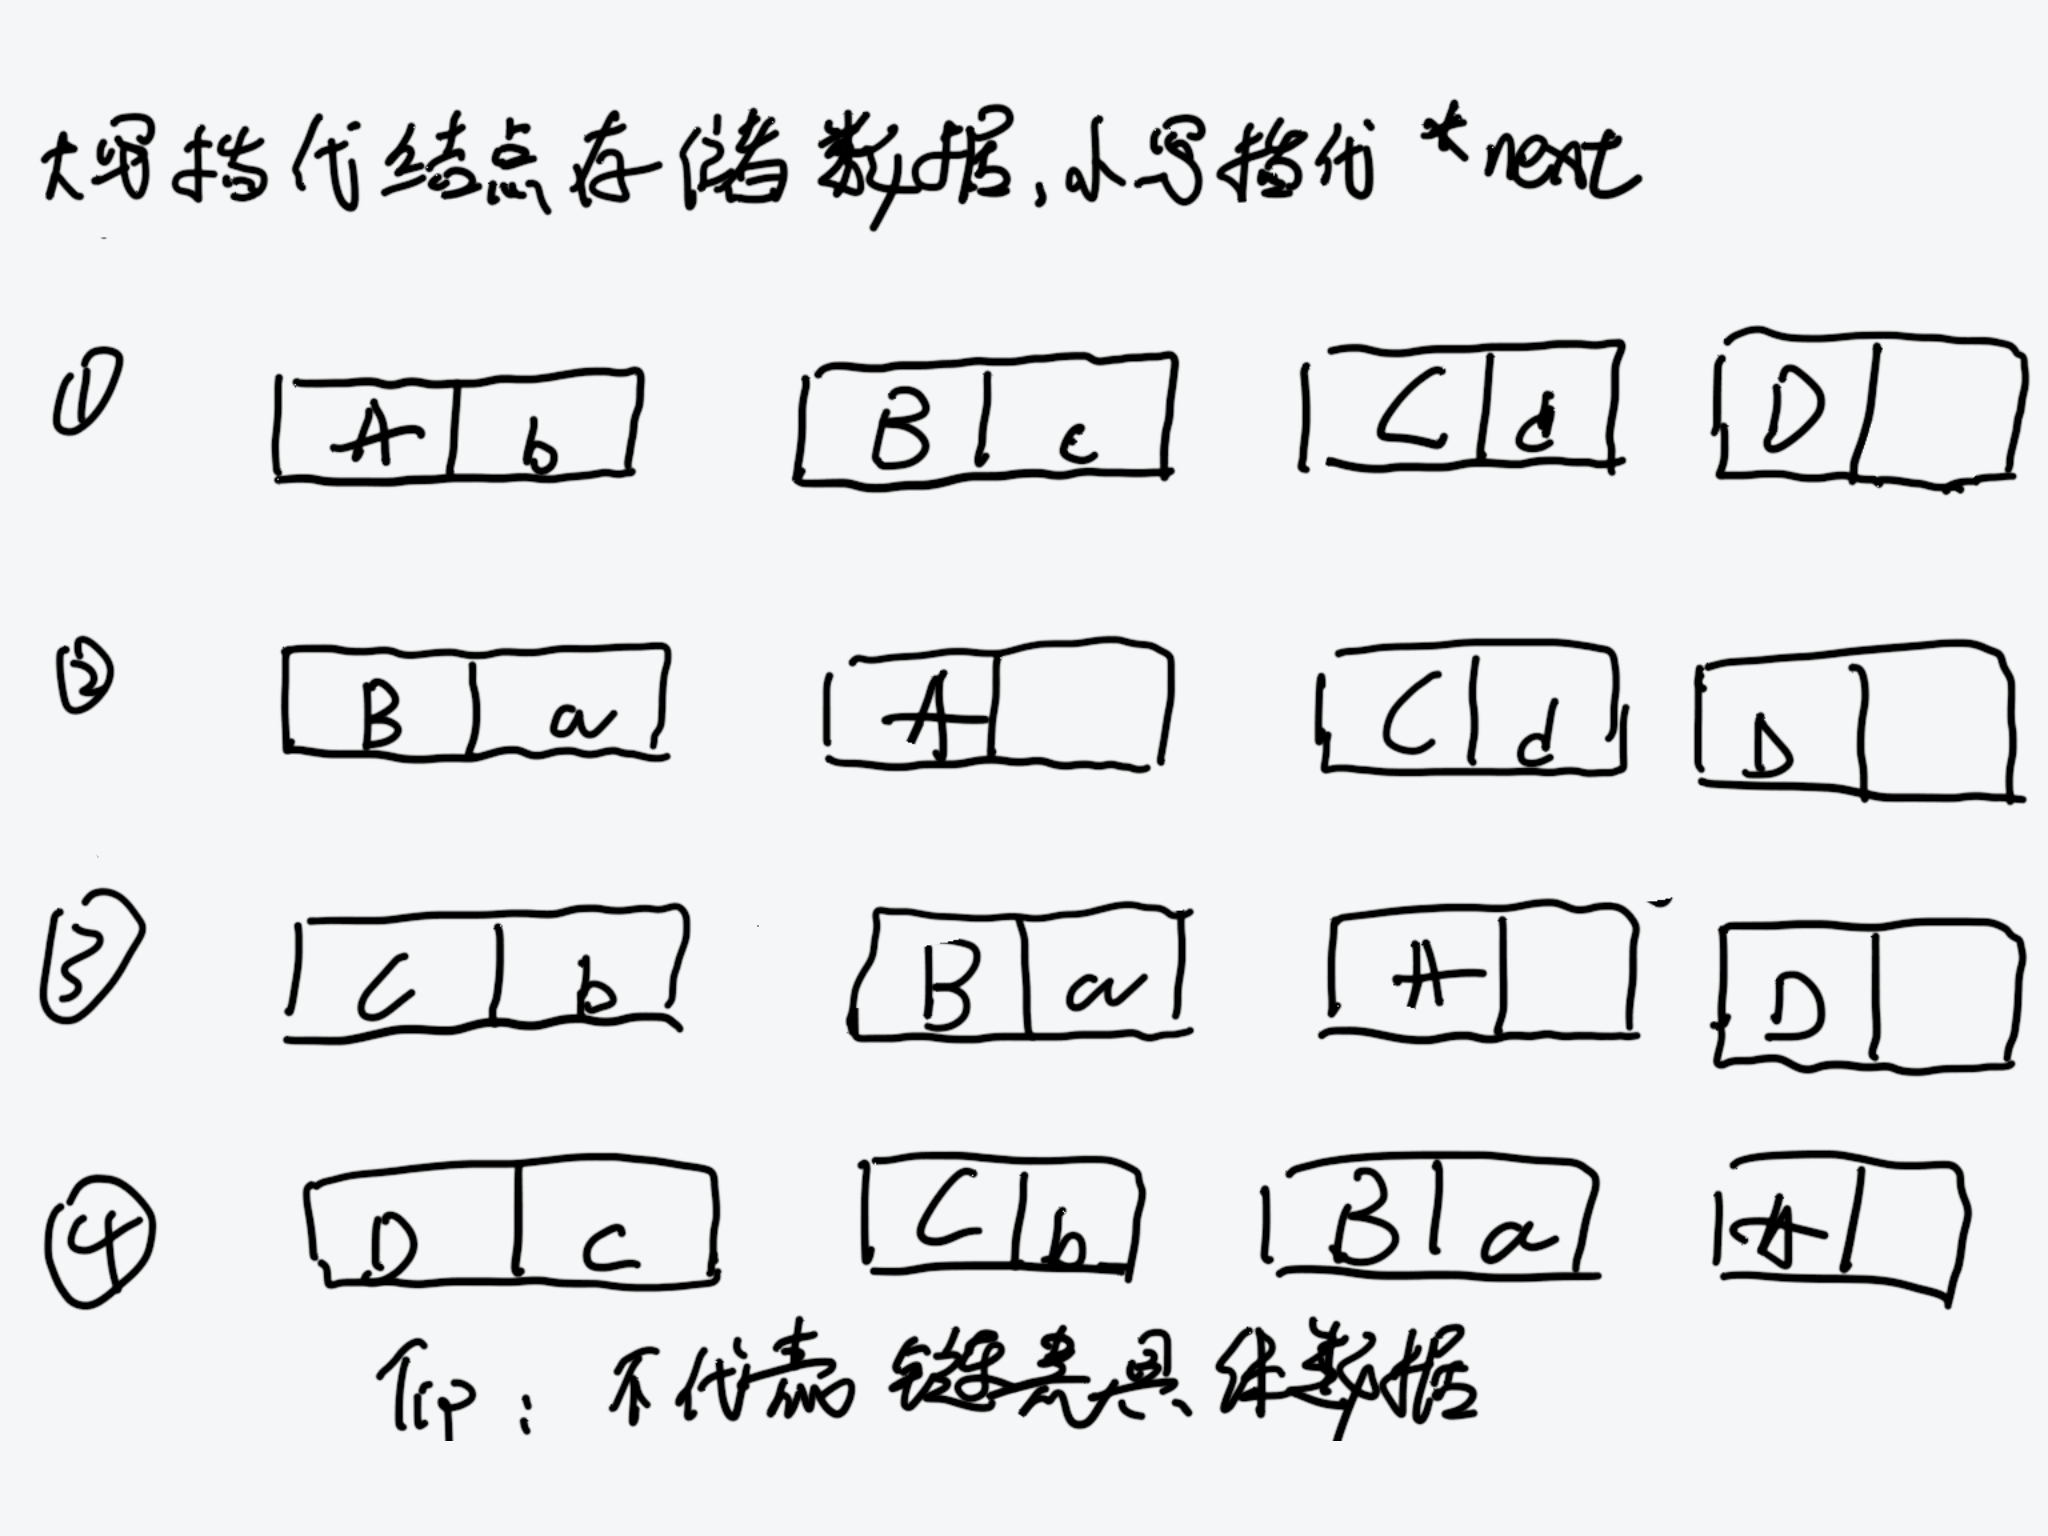 大写指代结点存储数据,小写指代*next
① A b B c C d D
② B a A C d D
③ C b B a A D
④ D c C b B a A
Tip:不代表链表具体数据